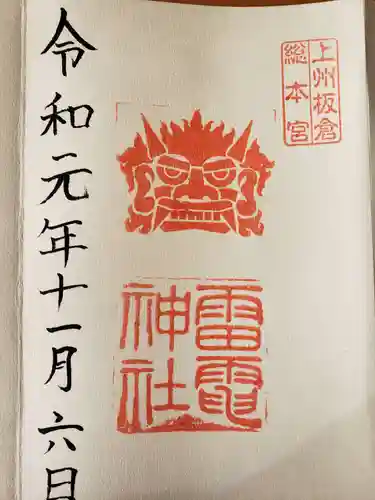 上州板倉
総本宮
雷電
神社
令和元年十一月六日